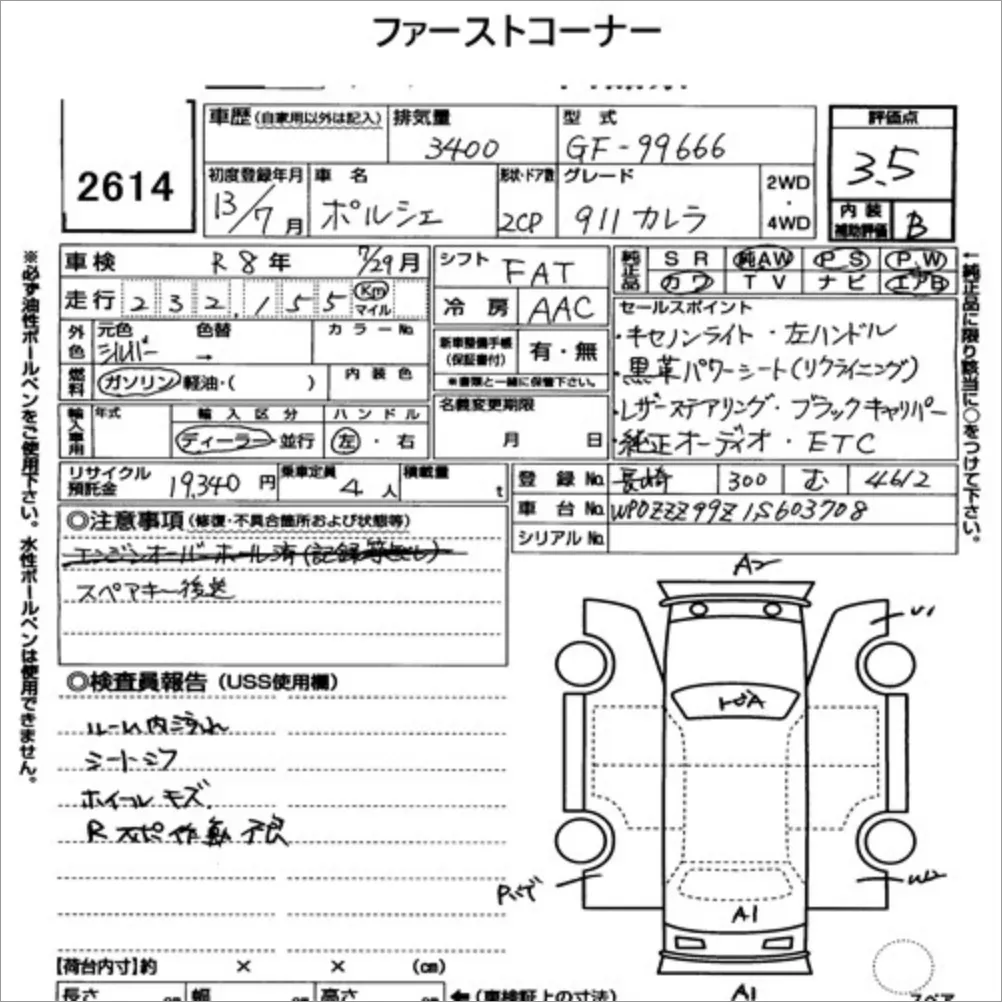 ファーストコーナー
2614
車歴(自家用以外は記入)
排気量
3400
型 式
GF-99666
評価点
3.5
初度登録年月
13/7月
車 名
ポルシェ
形状・ドア数
2CP
グレード
911 カレラ
2WD
・
4WD
内 装
補助評価
B
※必ず油性ボールペンをご使用下さい。水性ボールペンは使用できません。
車検 R8年 7/29月
シフト FAT
純正品
SR 純AW PS PW
カワ TV ナビ エアB
←純正品に限り該当に○をつけて下さい。
走行 232,155 Km マイル
冷 房 AAC
セールスポイント
・キセノンライト ・左ハンドル
・黒革パワーシート(リクライニング)
・レザーステアリング・ブラックキャリパー
・純正オーディオ ・ETC
外色
元色 シルバー
色替 →
カラーNo.
新車整備手帳
(保証書付)
有・無
※書類と一緒に保管下さい。
燃料
ガソリン 軽油・( )
内 装 色
名義変更期限
月 日
輸入車用
年式
輸 入 区 分
ディーラー・並行
ハ ン ド ル
左・右
リサイクル預託金 19,340 円
乗車定員 4 人
積載量 t
登 録 No. 長崎 300 む 4612
車 台 No. WP0ZZZ99Z1S603708
シリアル No.
◎注意事項(修復・不具合箇所および状態等)
エンジンオーバーホール済(記録等なし)
スペアキー後送
◎検査員報告(USS使用欄)
ルーム内汚れ
シートシワ
ホイールキズ
Rスポ作動不良
A2
U1
トビA
Pハゲ
W2
A1
A1
【荷台内寸】約 × × (cm)
長さ cm 幅 cm 高さ cm
←(車検証上の寸法)
スペア